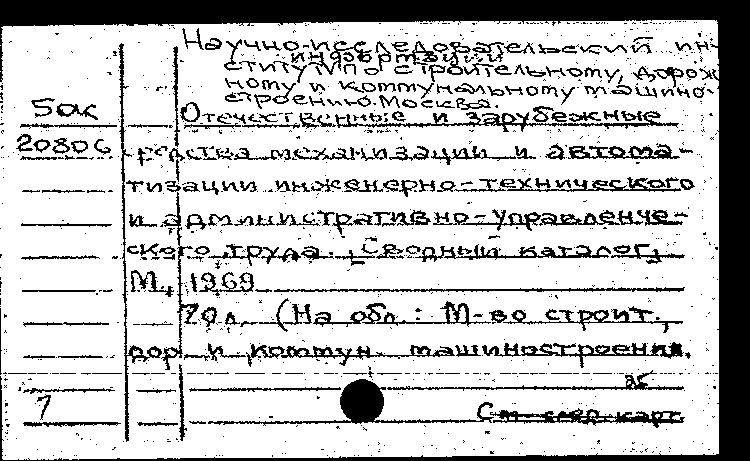 Научно-исследовательский ин-
ститут информации
по строительному, дорож
ному и коммунальному машино-
строению. Москва.
5ак Отечественные и зарубежные
20806 средства механизации и автома-
тизации инженерно-технического
и административно-управленче-
ского труда. [Сводный каталог]
М., 1969
70 л. (На обл.: М-во строит.,
дор. и коммун. машиностроения.
ас
7 См след карт